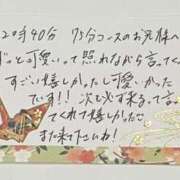 20時40分 75分コースのお兄様へ
ずっと可愛いって照れながら言ってくれて
すごい嬉しかったし可愛いかった
です!! 次も必ず来るって言って
くれて嬉しかった
また来て下さいね!